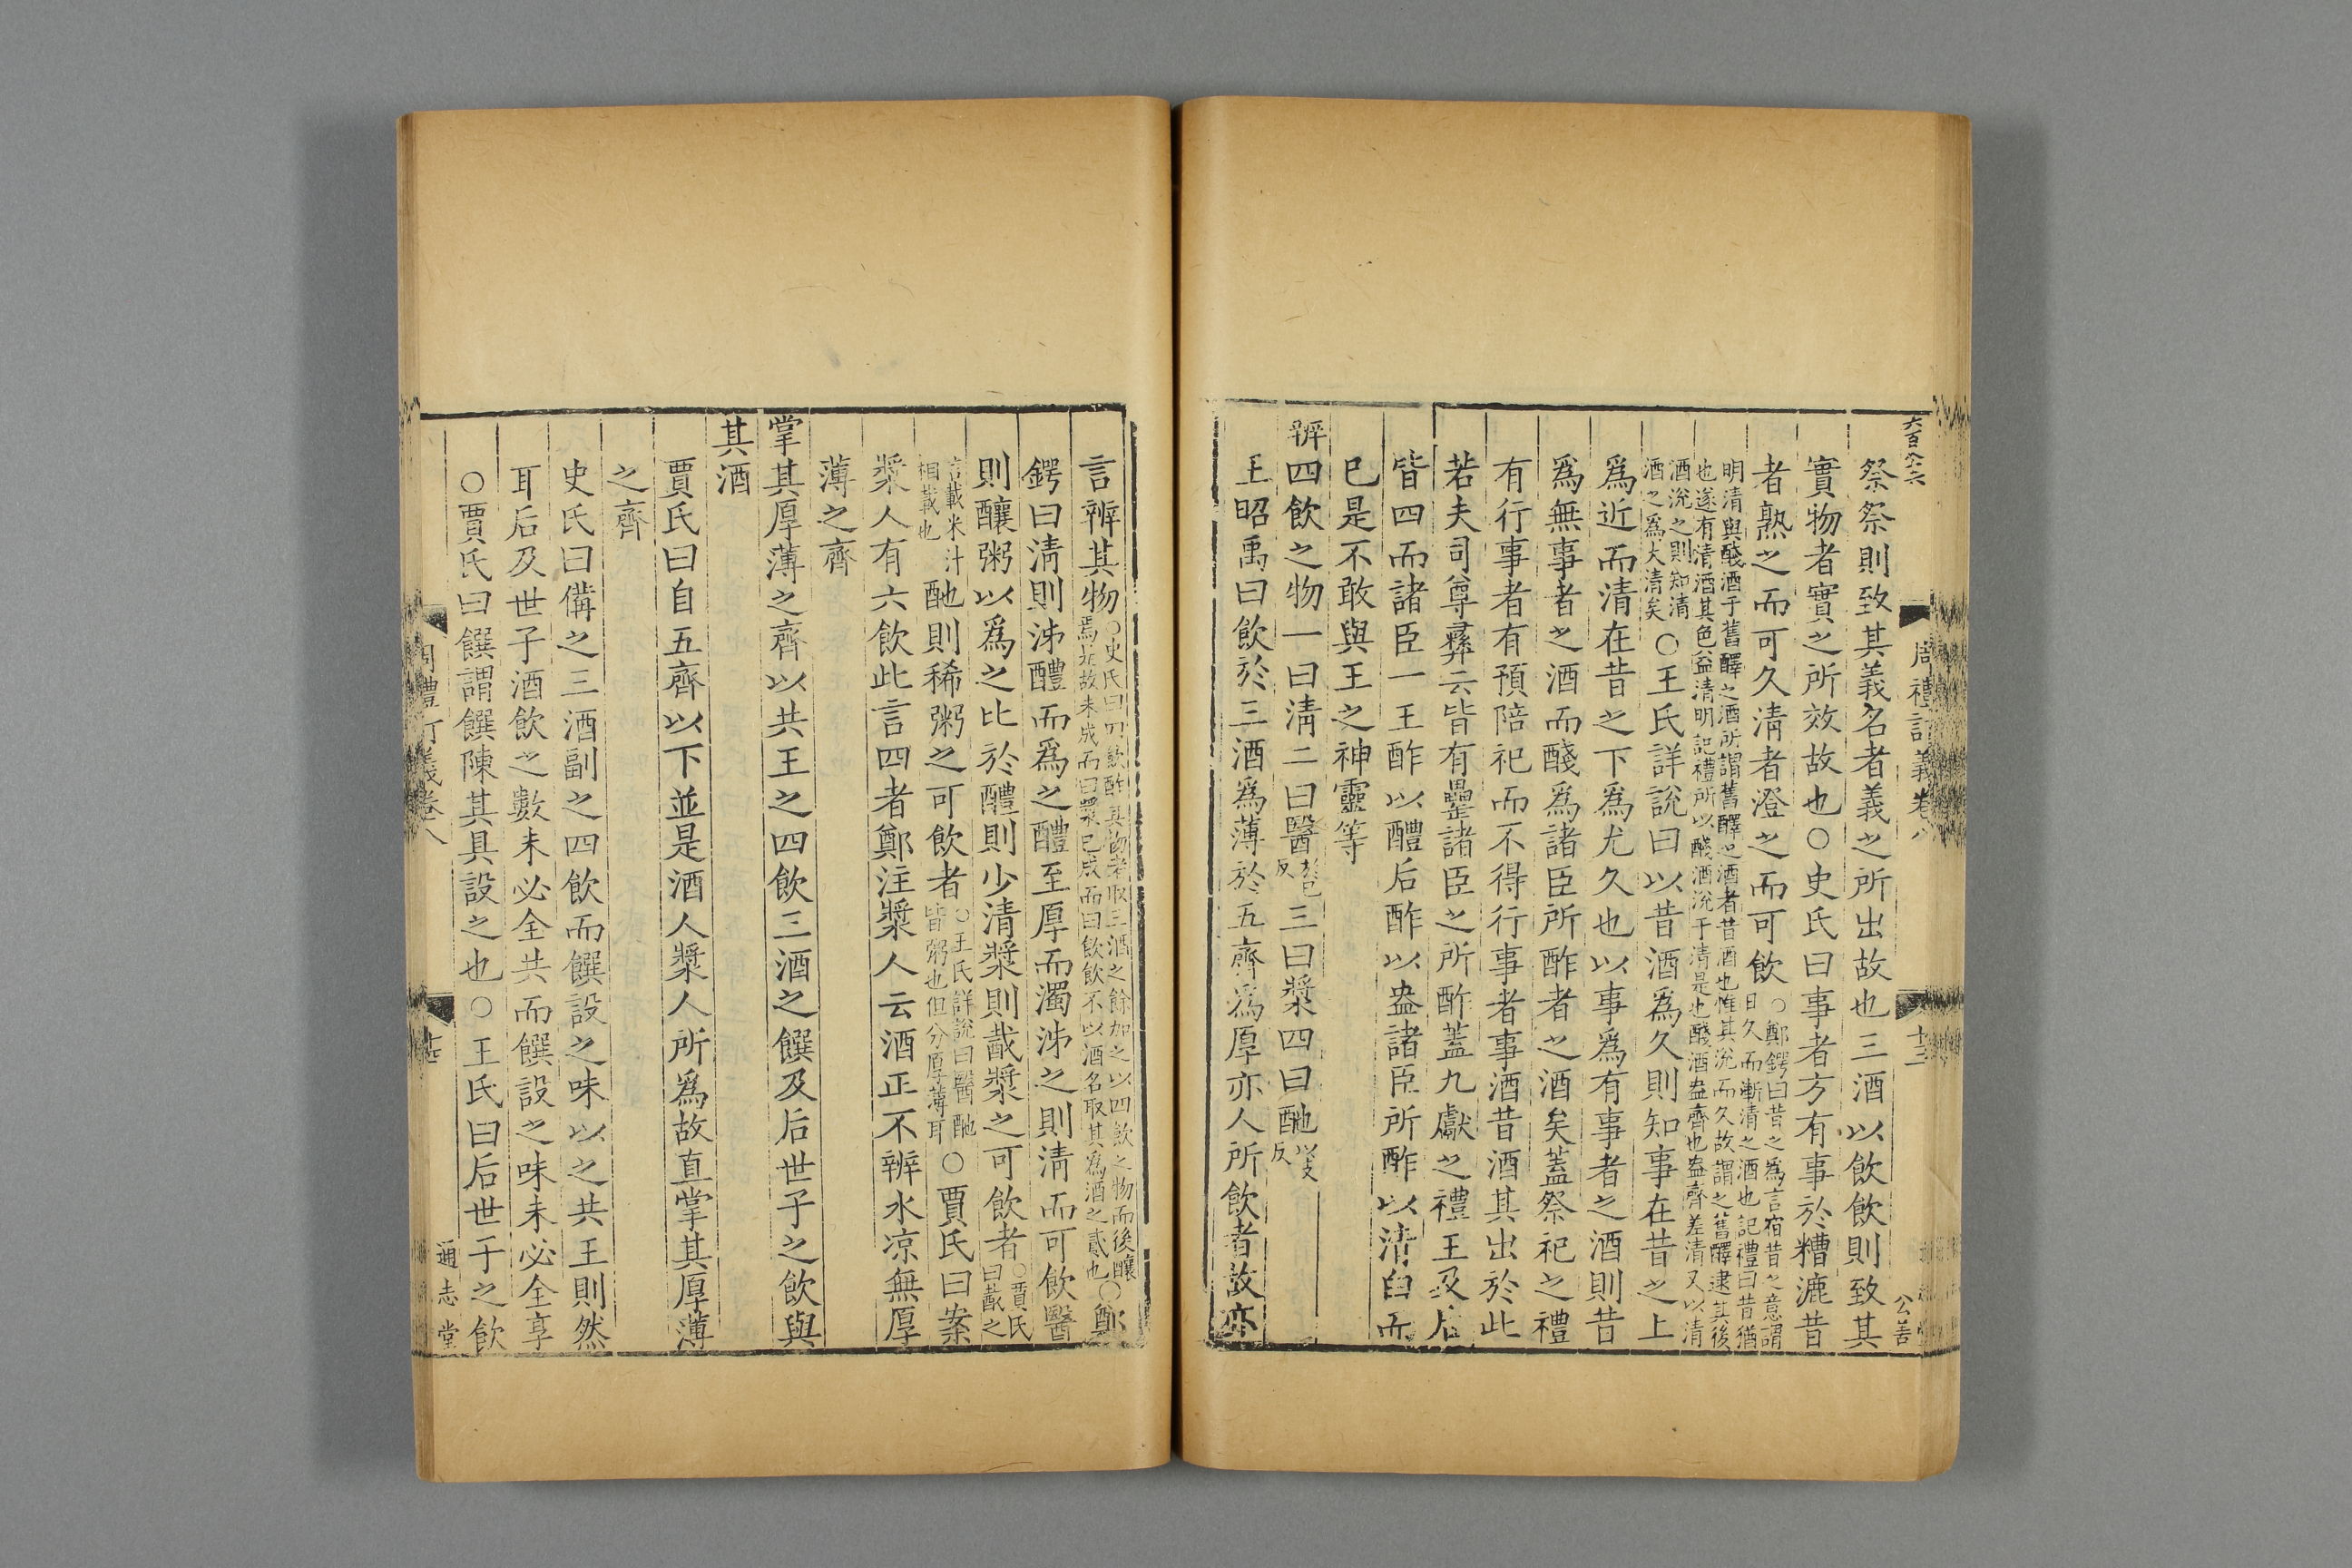 六百八六
周禮訂義卷八
十三
公善
祭祭則致其義名者義之所出故也三酒以飲飲則致其
實物者實之所效故也○史氏曰事者方有事於糟漉昔
者熟之而可久清者澄之而可飲○鄭鍔曰昔之爲言宿昔之意謂日久而漸清之酒也記禮曰昔猶
明清與醆酒于舊醳之酒所謂舊醳之酒者昔酒也惟其說而久故謂之舊醳逮其後也遂有清酒其色益清明記禮所以醆酒況于清是也醆酒盎齊也盎齊差清又以清
酒況之則知清酒之爲大清矣○王氏詳說曰以昔酒爲久則知事在昔之上
爲近而清在昔之下爲尤久也以事爲有事者之酒則昔
爲無事者之酒而醆爲諸臣所酢者之酒矣蓋祭祀之禮
有行事者有預陪祀而不得行事者事酒昔酒其出於此
若夫司尊彝云皆有罍諸臣之所酢蓋九獻之禮王及后
皆四而諸臣一王酢以醴后酢以盎諸臣所酢以清白而
已是不敢與王之神靈等
辨四飲之物一曰清二曰醫於己反三曰漿四曰酏以支反
王昭禹曰飲於三酒爲薄於五齊爲厚亦人所飲者故亦
言辨其物○史氏曰四飲酢其物者取三酒之餘加之以四飲之物而後釀焉故未成而曰漿已成而曰飲飲不以酒名取其爲酒之貳也○鄭
鍔曰清則泲醴而爲之醴至厚而濁泲之則清而可飲醫
則釀粥以爲之比於醴則少清漿則酨漿之可飲者○賈氏曰酨之
言載米汁相載也酏則稀粥之可飲者○王氏詳說曰醫酏皆粥也但分厚薄耳○賈氏曰案
漿人有六飲此言四者鄭注漿人云酒正不辨水涼無厚
薄之齊
掌其厚薄之齊以共王之四飲三酒之饌及后世子之飲與
其酒
賈氏曰自五齊以下並是酒人漿人所爲故直掌其厚薄
之齊
史氏曰備之三酒副之四飲而饌設之味以之共王則然
耳后及世子酒飲之數未必全共而饌設之味未必全享
○賈氏曰饌謂饌陳其具設之也○王氏曰后世于之飲
周禮訂義卷八
通志堂